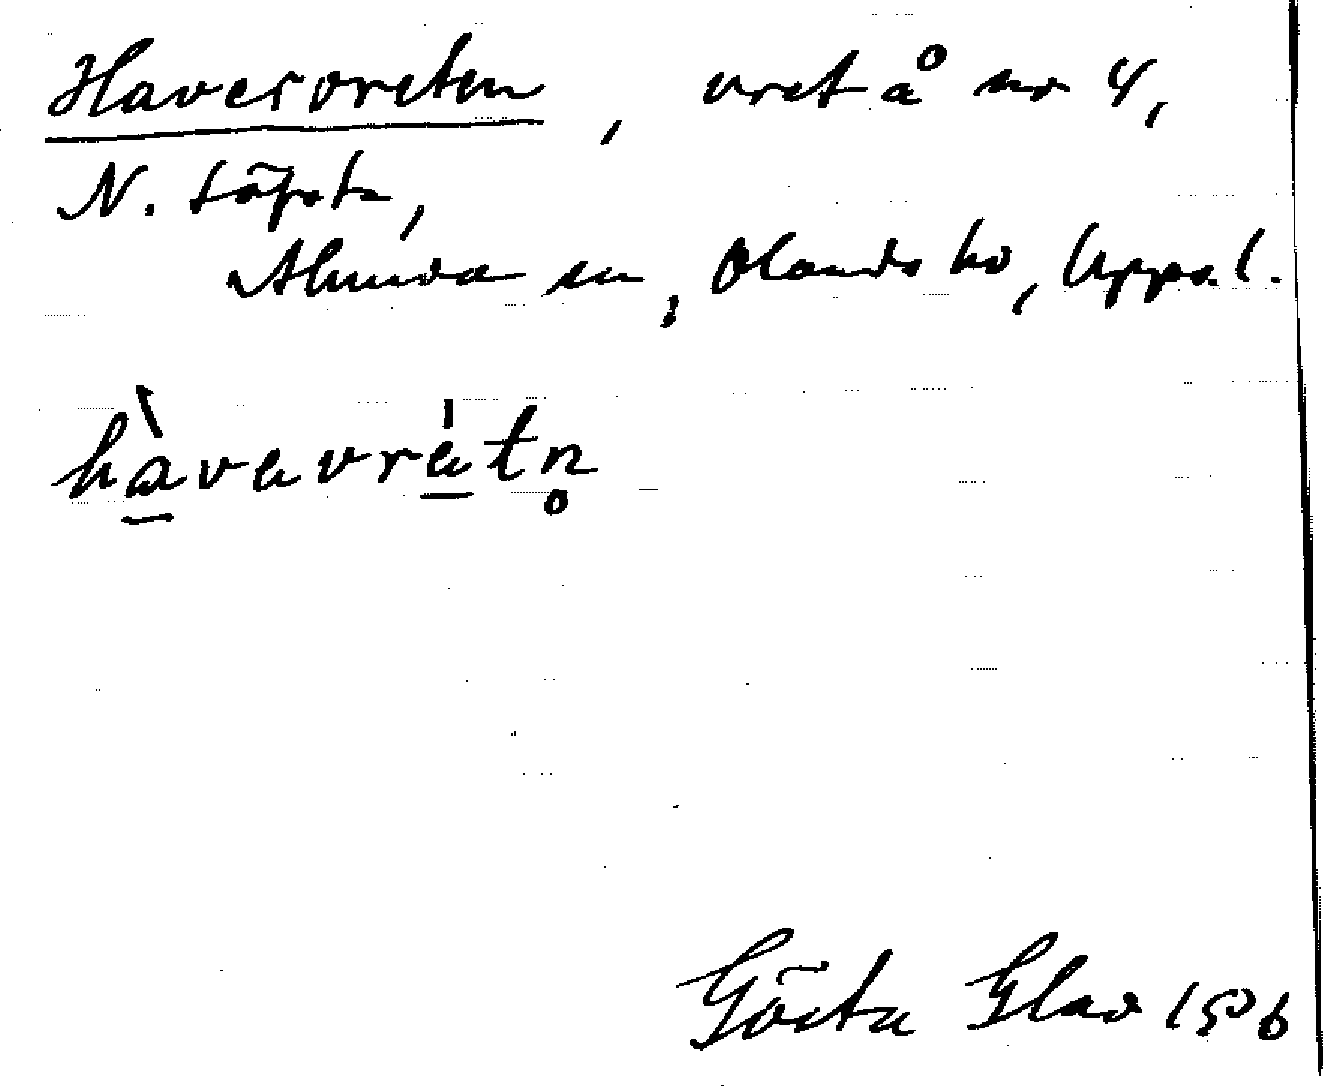 Haversvreten, vret å nr 4,
N. Löfsta,
Alunda sn, Olands hd, Upps. l.
hàvavrätn̥
Gösta Glad 1926